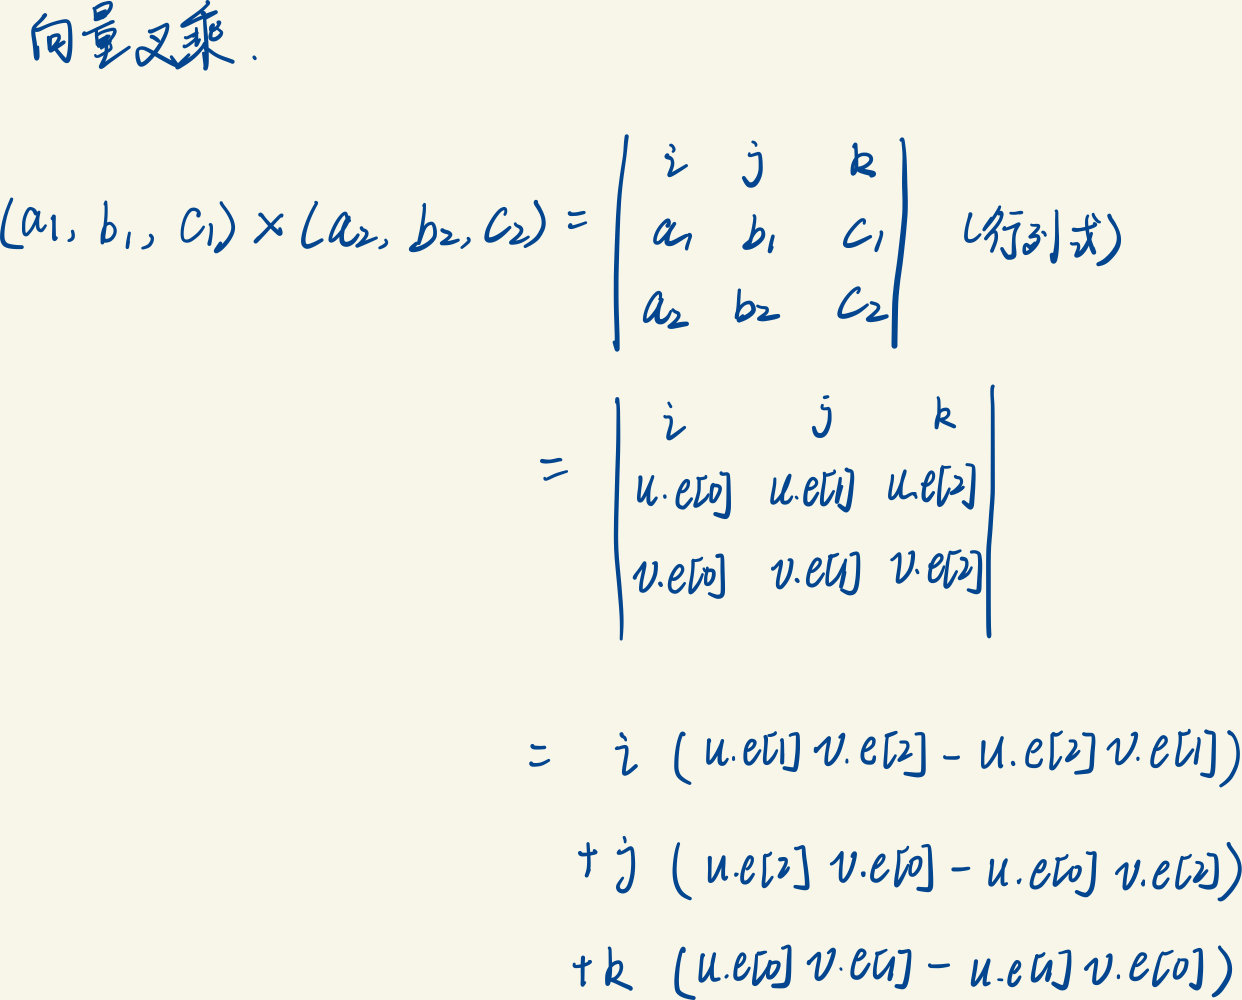 向量叉乘.
i j k
(a1, b1, c1) × (a2, b2, c2) = a1 b1 c1 (行列式)
a2 b2 c2
i j k
= u.e[0] u.e[1] u.e[2]
v.e[0] v.e[1] v.e[2]
= i (u.e[1] v.e[2] - u.e[2] v.e[1])
+ j (u.e[2] v.e[0] - u.e[0] v.e[2])
+ k (u.e[0] v.e[1] - u.e[1] v.e[0])